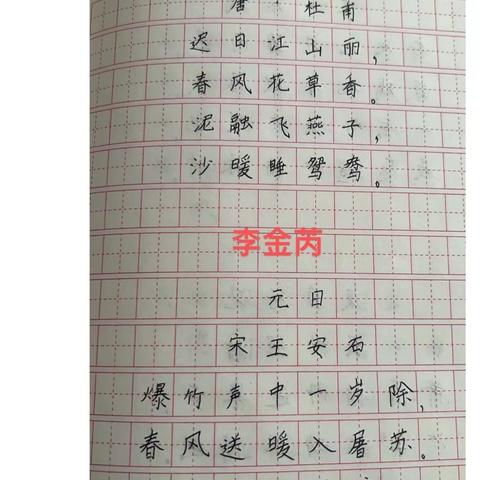 唐·杜甫
迟日江山丽，
春风花草香。
泥融飞燕子，
沙暖睡鸳鸯。
李金芮
元日
宋王安石
爆竹声中一岁除，
春风送暖入屠苏。